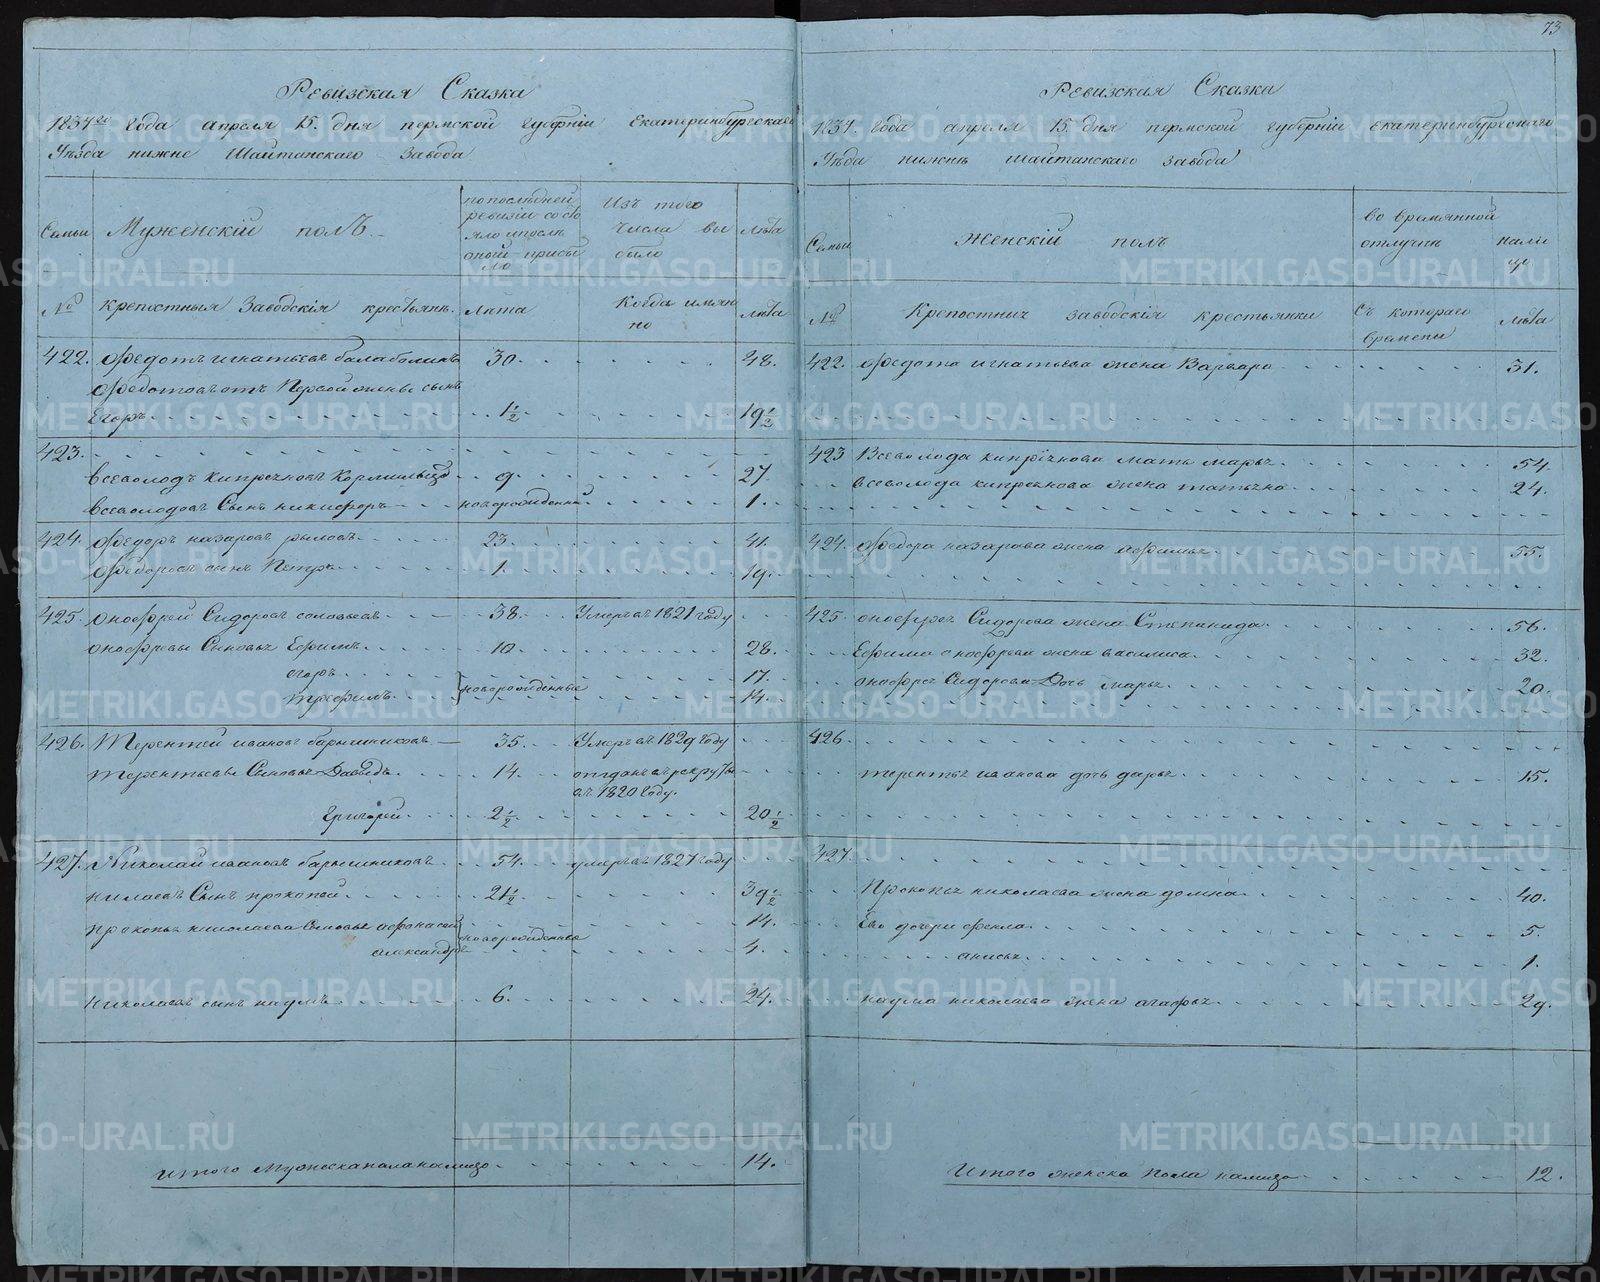 Ревизская Сказка
1834го года апреля 15. дня пермской губерніи Екатеринбургскаго
Уѣзда нижне Шайтанскаго завода
Семьи
Муженскій полъ
по последней ревизіи состо
яло и после
оной прибы
ло
Изъ того
числа вы
было
Лѣта
№
крепостныя Заводскія крестьянъ.
Лѣта
Когда имян
но
лѣта
422. Федотъ игнатьевъ балаболинъ 30. 48.
Федотовъ отъ Первой жены сынъ
Егоръ 1 1/2 19 1/2
423.
Всеволодъ Кипреяновъ Кормильцов 9. 27.
Всеволодовъ Сынъ никифоръ новорожденной 1.
424. Федоръ назаровъ рыловъ 23 41.
Федоровъ сынъ Петръ 1. 19.
425. Онофрей Сидоровъ соловьевъ 38. Умеръ въ 1821 году
онофревы Сыновья Ефимъ 10. 28.
егоръ 17.
новорожденные
трефилъ 14.
426. Терентей ивановъ барышниковъ 35. Умеръ въ 1829 году
терентьевы Сыновья Давыдъ 14. отданъ въ рекруты
въ 1820 году.
Григорей 2 1/2 20 1/2
427. Николай ивановъ барышниковъ 54. умеръ въ 1827 году
Сынъ прокопей 21 1/2 39 1/2
прокопья николаева Сыновья афонасей 14.
новорожденные
александръ 4.
николаевъ сынъ наумъ 6. 24.
итого Мужеска пола налицо 14.
73
Ревизская Сказка
1834. года апреля 15. дня пермской губерніи екатеринбургскаго
Уѣзда нижне шайтанскаго завода
Семьи
Женскій полъ
Во времянной
отлучке
нали
це
№
Крепостныя заводскія крестьянки
Съ котораго
времени
лѣта
422. Федота игнатьева жена Варвара 31.
423 Всеволода кипріянова мать марья 54.
всеволода кипреянова жена татьяна 24.
424. Федора назарова жена 55.
425. онофрея Сидорова жена Степанида 56.
Ефима онофреева жена василиса 32.
онофрея Сидорова Дочь марья 20.
426.
терентья иванова дочь дарья 15.
427
Прокопья николаева жена домна 40.
Ево дочери фекла 5.
анисья 1.
наума николаева жена агафья 29.
Итого женска пола налицо 12.
METRIKI.GASO-URAL.RU